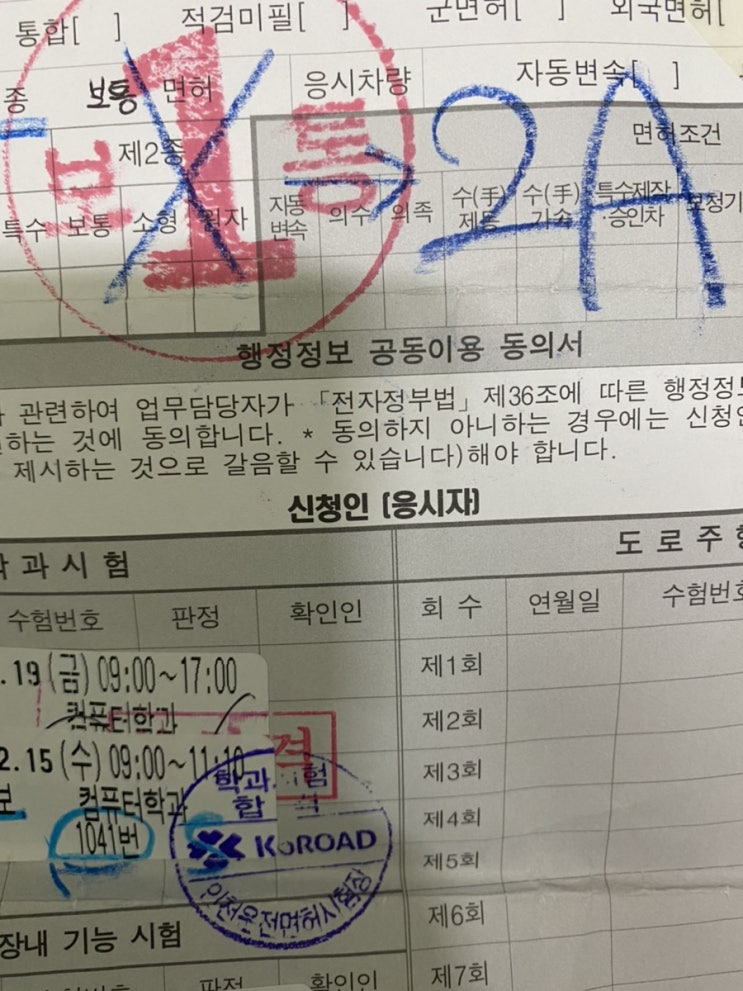 통합[ ] 적검미필[ ] 군면허[ ] 외국면허[
종 보통 면허 응시차량 자동변속[ ]
1
보 통
X → 2A
제2종 면허조건
특수 보통 소형 원자 자동변속 의수 의족 수(手)제동 수(手)가속 특수제작·승인차 보청기
행정정보 공동이용 동의서
관련하여 업무담당자가 「전자정부법」 제36조에 따른 행정정보
하는 것에 동의합니다. * 동의하지 아니하는 경우에는 신청인
제시하는 것으로 갈음할 수 있습니다)해야 합니다.
신청인 (응시자)
학 과 시 험 도 로 주 행
수험번호 판정 확인인 회 수 연월일 수험번호
.19(금) 09:00~17:00
컴퓨터학과
격
2.15(수) 09:00~11:10
보 컴퓨터학과
1041번
학과시험
합격
KoROAD
인천운전면허시험장
제1회
제2회
제3회
제4회
제5회
제6회
제7회
장내 기능 시험
수험번호 판정 확인인